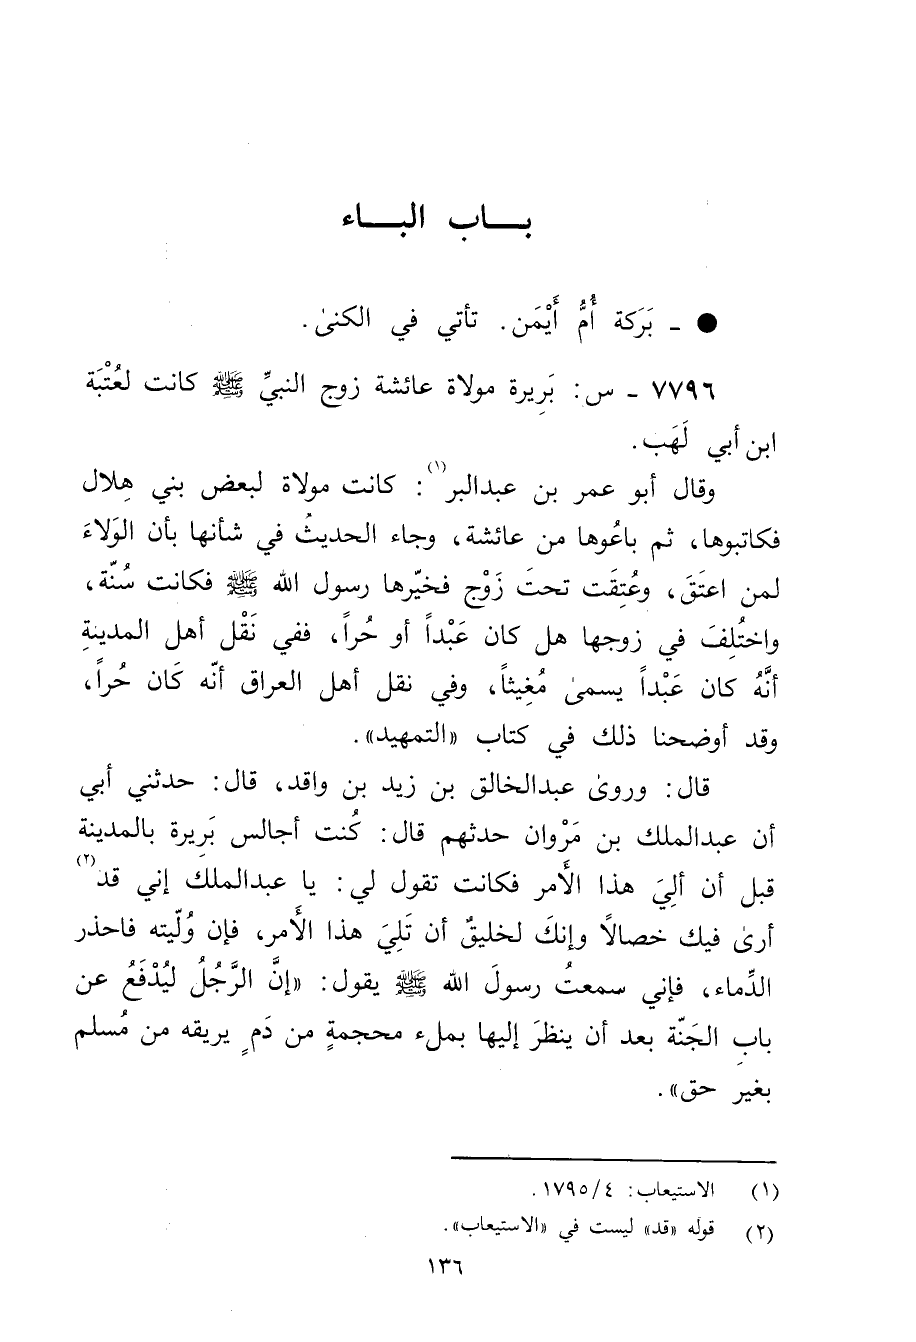 بـــاب البـــاء
● ـ بَرَكة أُمُّ أَيْمَن. تأتي في الكنىٰ.
٧٧٩٦ ـ س: بَرِيرة مولاة عائشة زوج النبيِّ ﷺ كانت لعُتْبَة
ابن أبي لَهَب.
وقال أبو عمر بن عبدالبر(١): كانت مولاة لبعض بني هِلال
فكاتبوها، ثم باعُوها من عائشة، وجاء الحديثُ في شأنها بأن الوَلاءَ
لمن اعتَقَ، وعُتِقَت تحتَ زَوْج فخيّرها رسول الله ﷺ فكانت سُنّة،
واختُلِفَ في زوجها هل كان عَبْداً أو حُراً، ففي نَقْل أهل المدينةِ
أنَّهُ كان عَبْداً يسمىٰ مُغِيثاً، وفي نقل أهل العراق أنّه كَان حُراً،
وقد أوضحنا ذلك في كتاب «التمهيد».
قال: وروىٰ عبدالخالق بن زيد بن واقد، قال: حدثني أبي
أن عبدالملك بن مَرْوان حدثهم قال: كُنت أجالس بَرِيرة بالمدينة
قبل أن ألِيَ هذا الأَمر فكانت تقول لي: يا عبدالملك إني قد(٢)
أرىٰ فيك خصالاً وإنكَ لخليقٌ أن تَلِيَ هذا الأَمر، فإن وُلّيته فاحذر
الدِّماء، فإني سمعتُ رسولَ الله ﷺ يقول: «إنَّ الرَّجُلُ ليُدْفَعُ عن
بابِ الجَنّة بعد أن ينظرَ إليها بملء محجمةٍ من دَمٍ يريقه من مُسلم
بغير حق».
(١) الاستيعاب: ٤/١٧٩٥.
(٢) قوله «قد» ليست في «الاستيعاب».
١٣٦